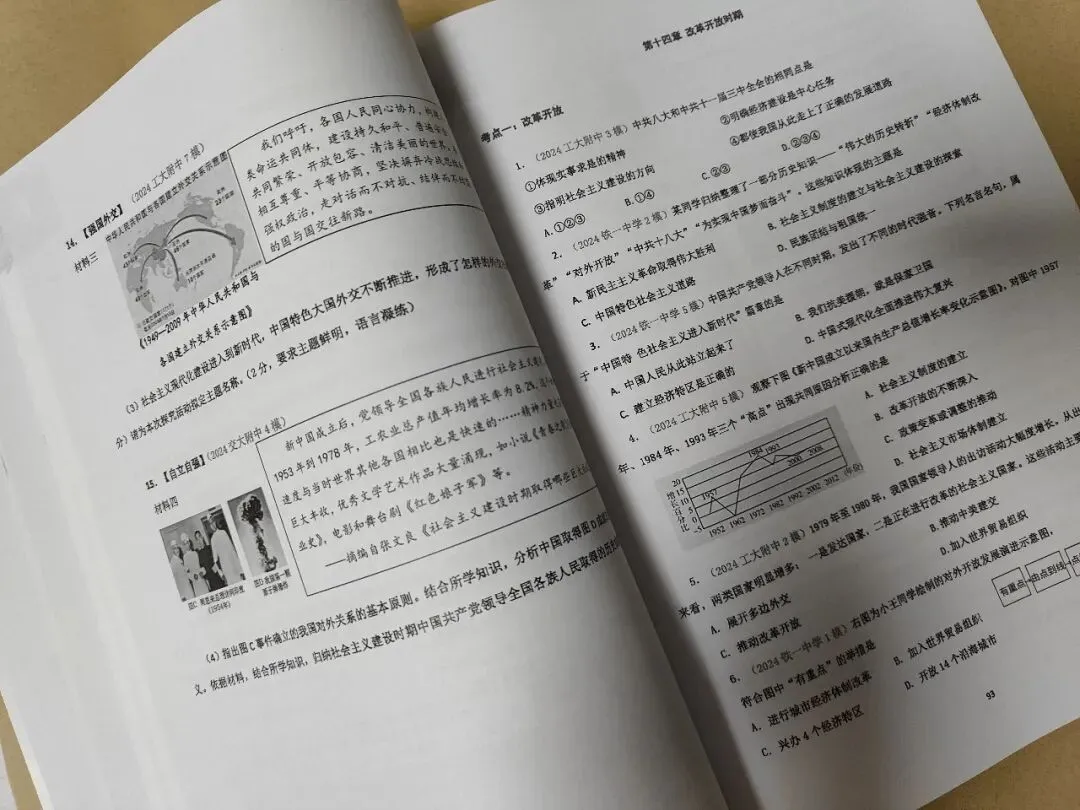 14. 【强国外交】（2024 工大附中 7 模）
材料三
中华人民共和国与各国建立外交关系示意图
我们呼吁，各国人民同心协力，构建人
类命运共同体，建设持久和平、普遍安全、
共同繁荣、开放包容、清洁美丽的世界。
相互尊重、平等协商，坚决摒弃冷战思维
强权政治，走对话而不对抗、结伴而不结盟
的国与国交往新路。
《1949—2009 年中华人民共和国与
各国建立外交关系示意图》
（3）社会主义现代化建设进入到新时代，中国特色大国外交不断推进，形成了怎样的外交
分）请为本次探究活动拟定主题名称。（2 分，要求主题鲜明，语言凝练）
15. 【自立自强】（2024 交大附中 4 模）
材料四
新中国成立后，党领导全国各族人民进行社会主义
1953 年到 1978 年，工农业总产值年均增长率为 8.2%，
速度与当时世界其他各国相比也是快速的……精神力量
巨大丰收，优秀文学艺术作品大量涌现，如小说《青春之歌》
业史》，电影和舞台剧《红色娘子军》等。
——摘编自张文良《社会主义建设时期取得哪些巨大
图C 周恩来总理访问印度
（1954年）
图D 我国第一颗
原子弹爆炸
（4）指出图 C 事件确立的我国对外关系的基本原则。结合所学知识，分析中国取得图 D 成
义。依据材料，结合所学知识，归纳社会主义建设时期中国共产党领导全国各族人民取得的历史
第十四章 改革开放时期
考点一：改革开放
1. （2024 工大附中 3 模）中共八大和中共十一届三中全会的相同点是
①体现实事求是的精神 ②明确经济建设是中心任务
③指明社会主义建设的方向 ④都使我国从此走上了正确的发展道路
A. ①②③ B. ①④ C. ②③ D. ②③④
2. （2024 铁一中学 2 模）某同学归纳整理了一部分历史知识——“伟大的历史转折”“经济体制改
革”“对外开放”“中共十八大”“为实现中国梦而奋斗”。这些知识体现的主题是
A. 新民主主义革命取得伟大胜利 B. 社会主义制度的建立与社会主义建设的探索
C. 中国特色社会主义道路 D. 民族团结与祖国统一
3. （2024 铁一中学 5 模）中国共产党领导人在不同时期，发出了不同的时代强音。下列名言名句，属
于“中国特 色社会主义进入新时代”篇章的是
A. 中国人民从此站立起来了 B. 我们抗美援朝，就是保家卫国
C. 建立经济特区是正确的 D. 中国式现代化全面推进伟大复兴
4. （2024 工大附中 5 模）观察下图《新中国成立以来国内生产总值增长率变化示意图》，对图中 1957
年、1984 年、1993 年三个“高点”出现共同原因分析正确的是
A. 社会主义制度的建立
B. 改革开放的不断深入
C. 改革变革或调整的推动
D. 社会主义市场体制建立
增长百分比
20
15
10
5
0
-5
1957 1984 1993 2000 2008
1952 1962 1972 1982 1992 2002 2012 (年份)
5. （2024 工大附中 2 模）1979 年至 1980 年，我国国家领导人的出访活动大幅度增长，从出
来看，两类国家明显增多：一是发达国家，二是正在进行改革的社会主义国家。这些活动主要
A. 展开多边外交 B. 推动中美建交
C. 推动改革开放 D. 加入世界贸易组织
6. （2024 铁一中学 1 模）右图为小王同学绘制的对外开放发展演进示意图，
符合图中“有重点”的举措是
有重点
由点到线
A. 进行城市经济体制改革 B. 加入世界贸易组织
C. 兴办 4 个经济特区 D. 开放 14 个沿海城市
93